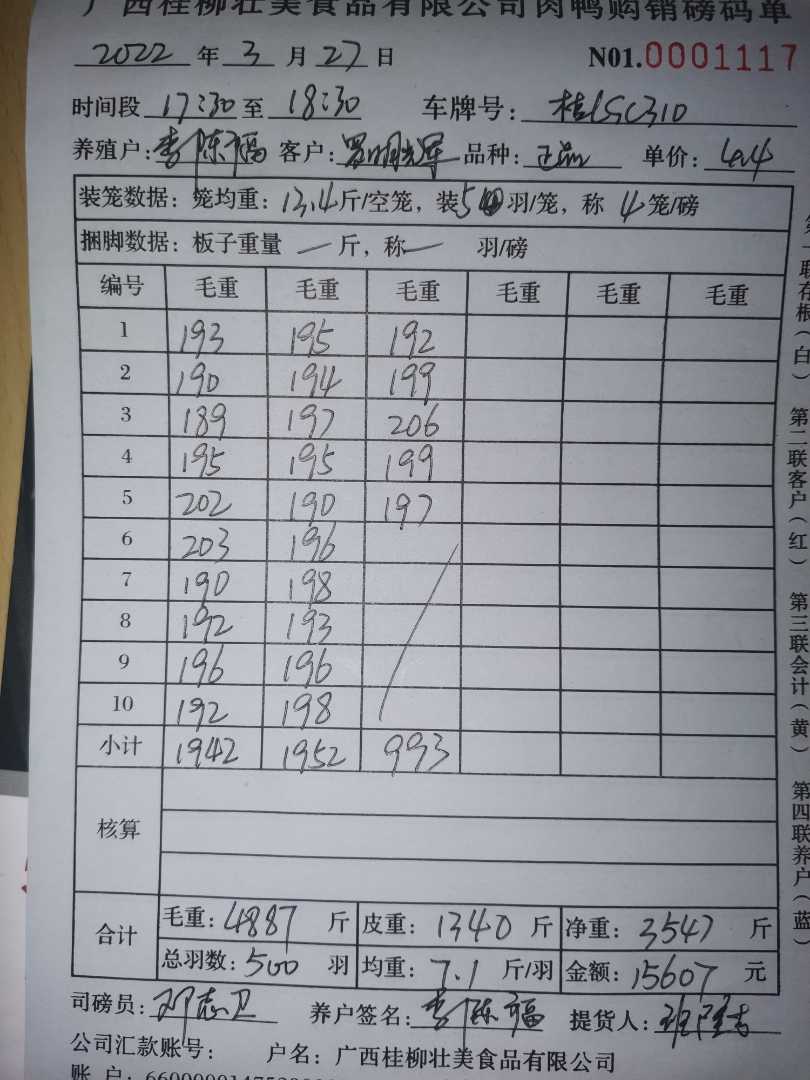 广西桂柳壮美食品有限公司肉鸭购销磅码单
2022 年 3 月 27 日 N01.0001117
时间段 17:30 至 18:30 车牌号:
养殖户: 李陈福 客户: 品种: 单价: 4.4
装笼数据: 笼均重: 13.4 斤/空笼, 装 5 羽/笼, 称 4 笼/磅
捆脚数据: 板子重量 — 斤, 称 — 羽/磅
编号 毛重 毛重 毛重 毛重 毛重 毛重
1 193 195 192
2 190 194 199
3 189 197 206
4 195 195 199
5 202 190 197
6 203 196
7 190 198
8 192 193
9 196 196
10 192 198
小计 1942 1952 993
核算
合计 毛重: 4887 斤 皮重: 1340 斤 净重: 3547 斤
总羽数: 500 羽 均重: 7.1 斤/羽 金额: 15607 元
司磅员: 邓志卫 养户签名: 李陈福 提货人:
公司汇款账号: 户名: 广西桂柳壮美食品有限公司
账 户:
第一联存根(白) 第二联客户(红) 第三联会计(黄) 第四联养户(蓝)